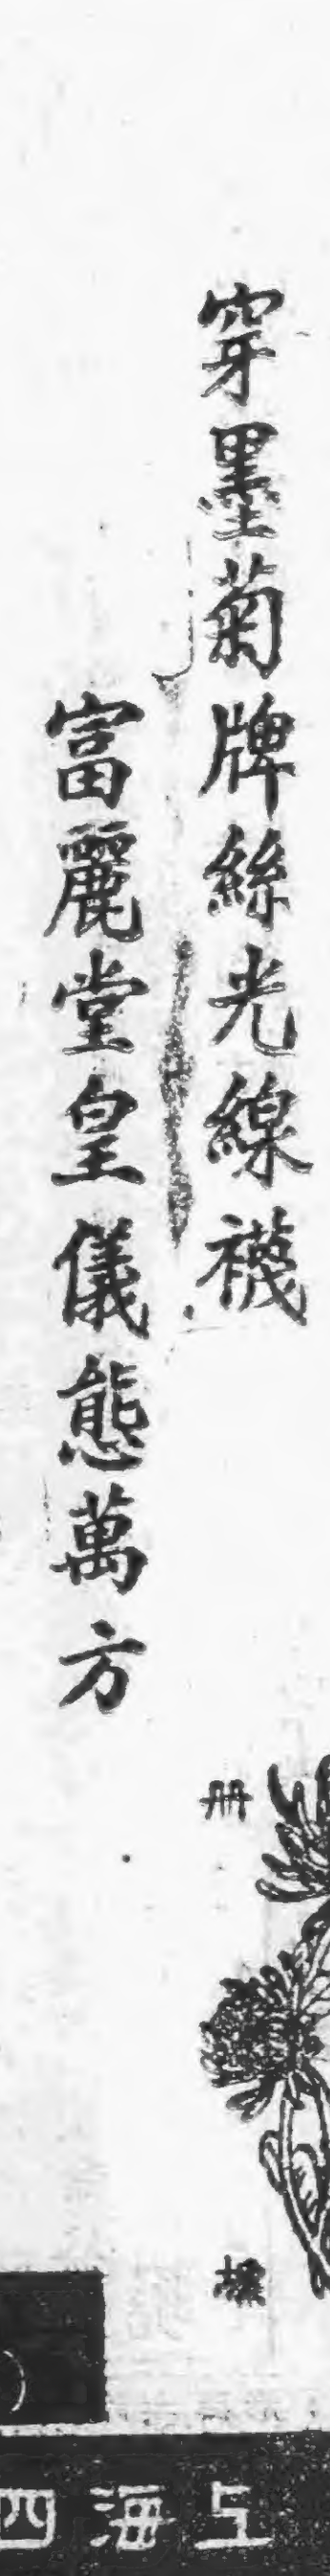 穿墨菊牌絲光線襪
富麗堂皇儀態萬方
冊
標
上海四